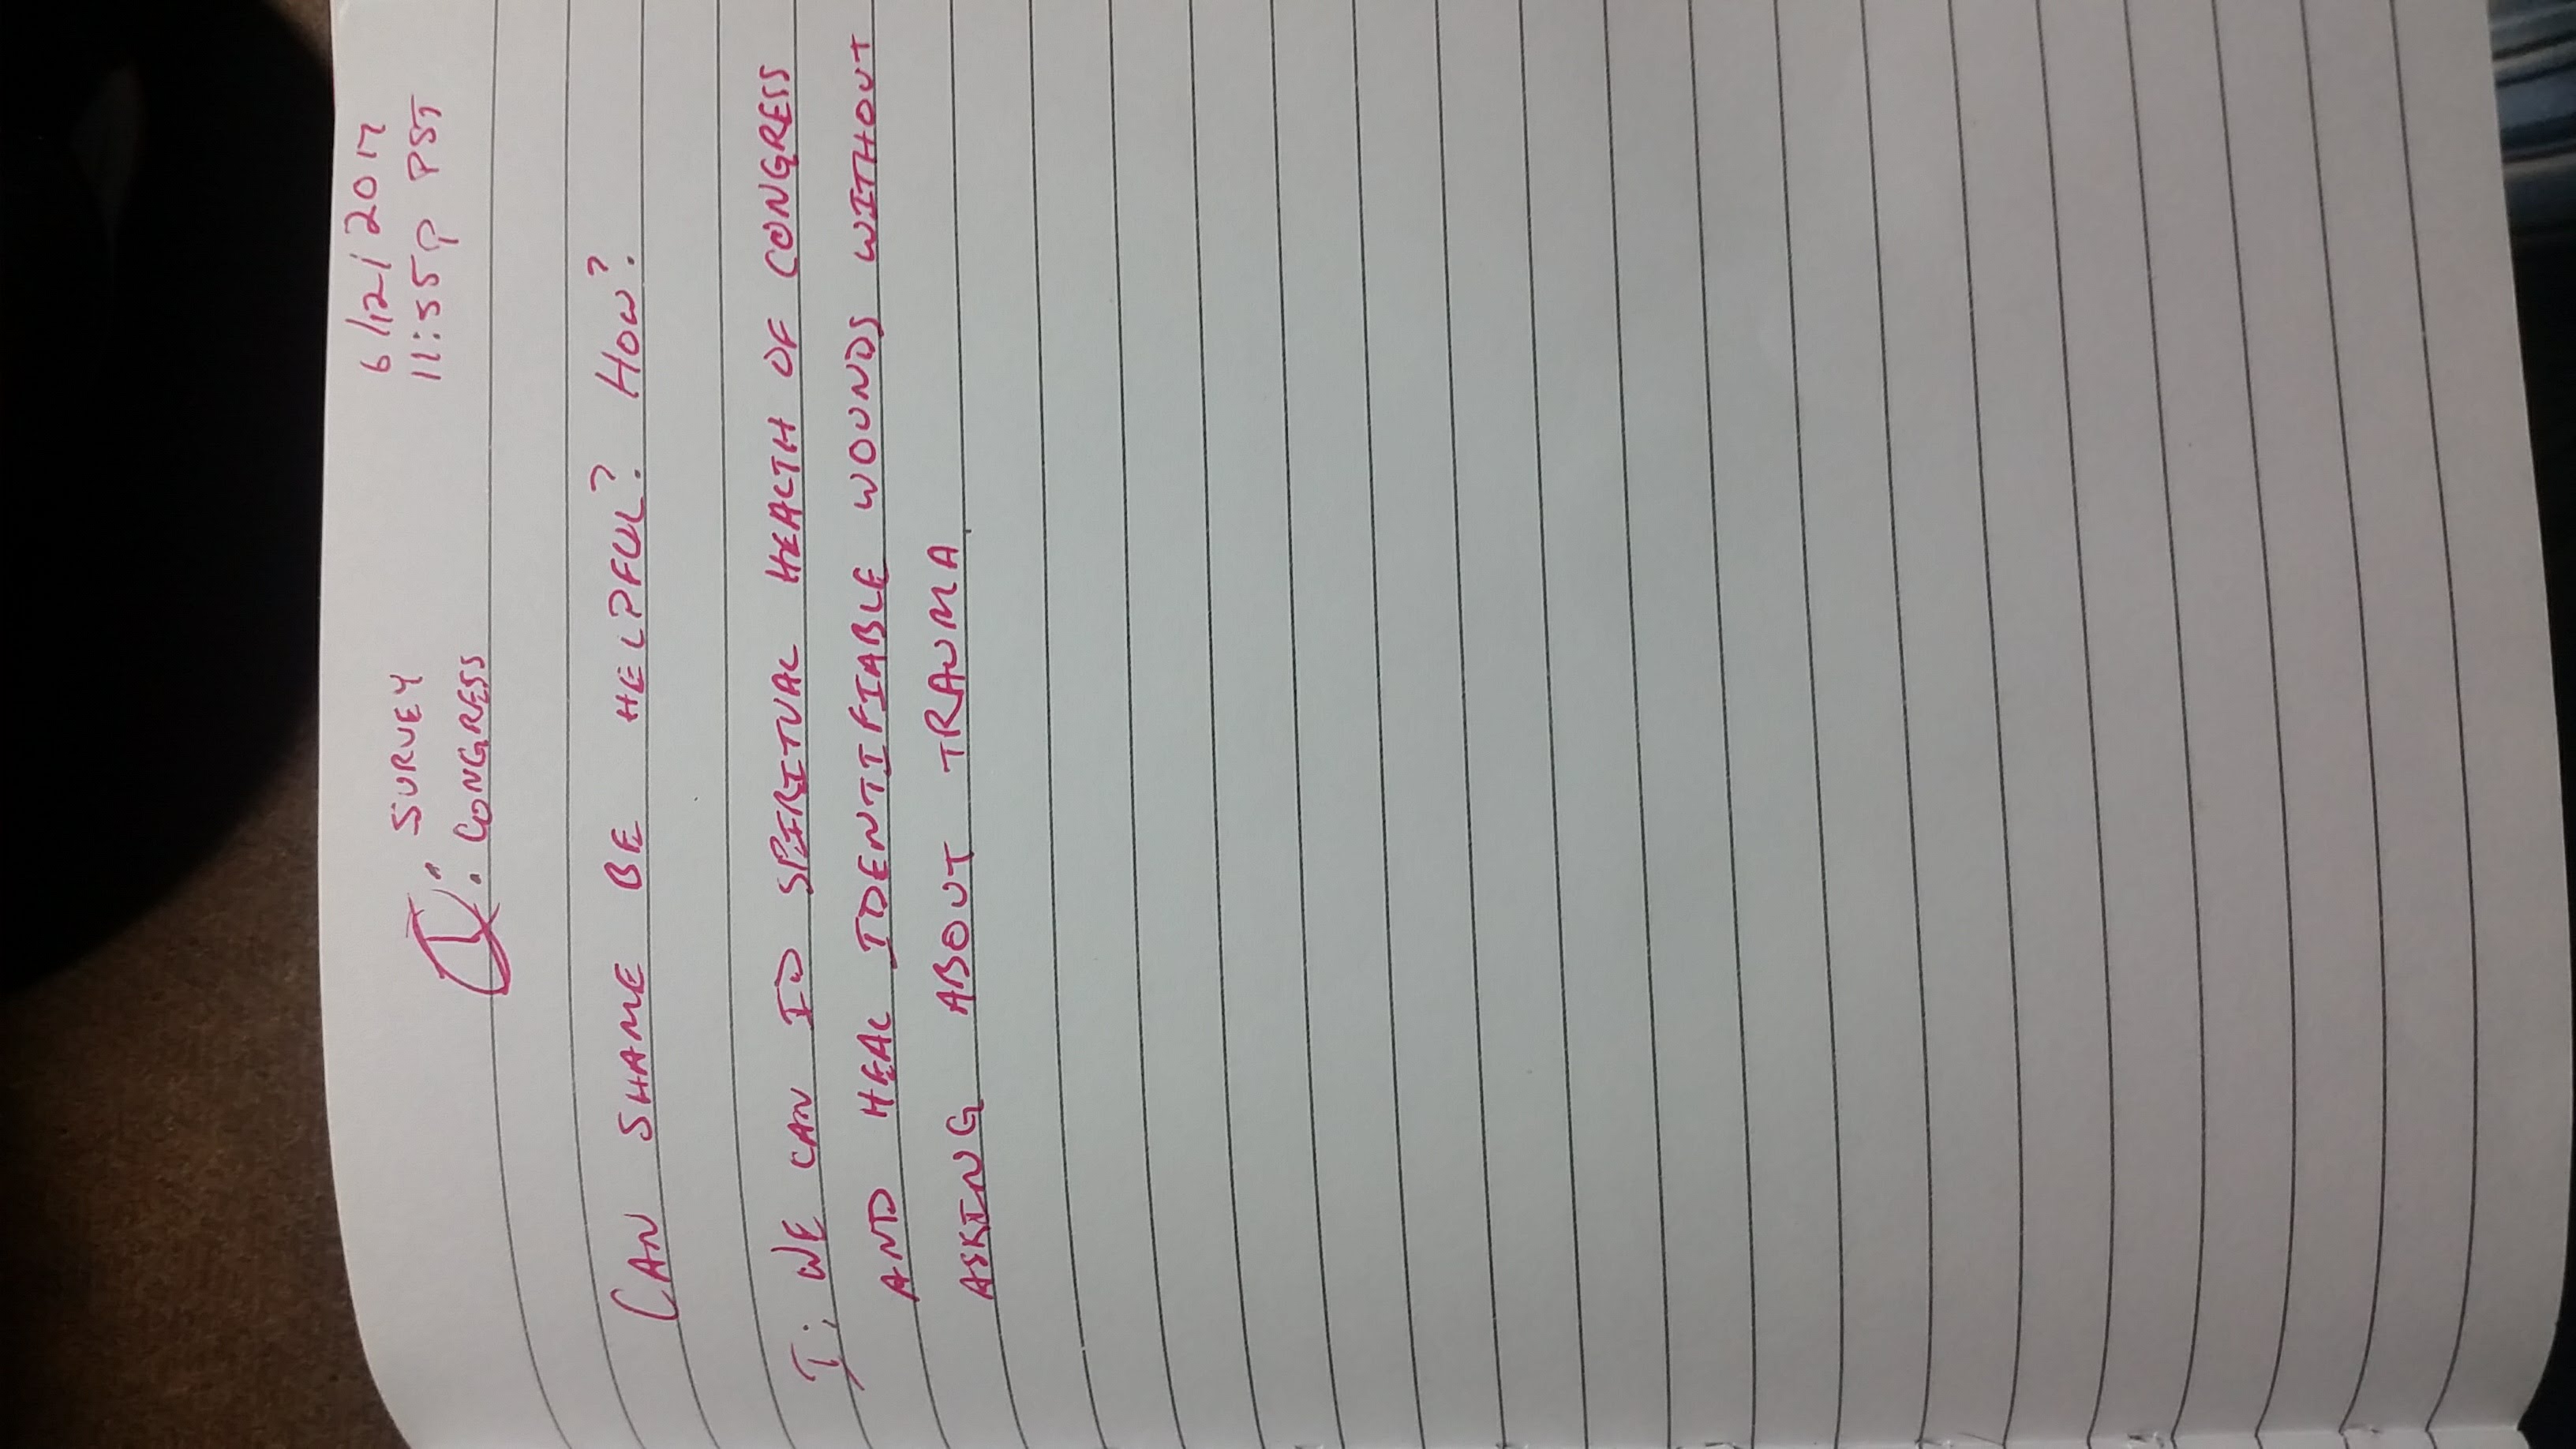 6/12/2017
SURVEY 11:55p PST
: CONGRESS
CAN SHAME BE HELPFUL? HOW?
T: WE CAN ID SPIRITUAL HEALTH OF CONGRESS
AND HEAL IDENTIFIABLE WOUNDS WITHOUT
ASKING ABOUT TRAUMA.